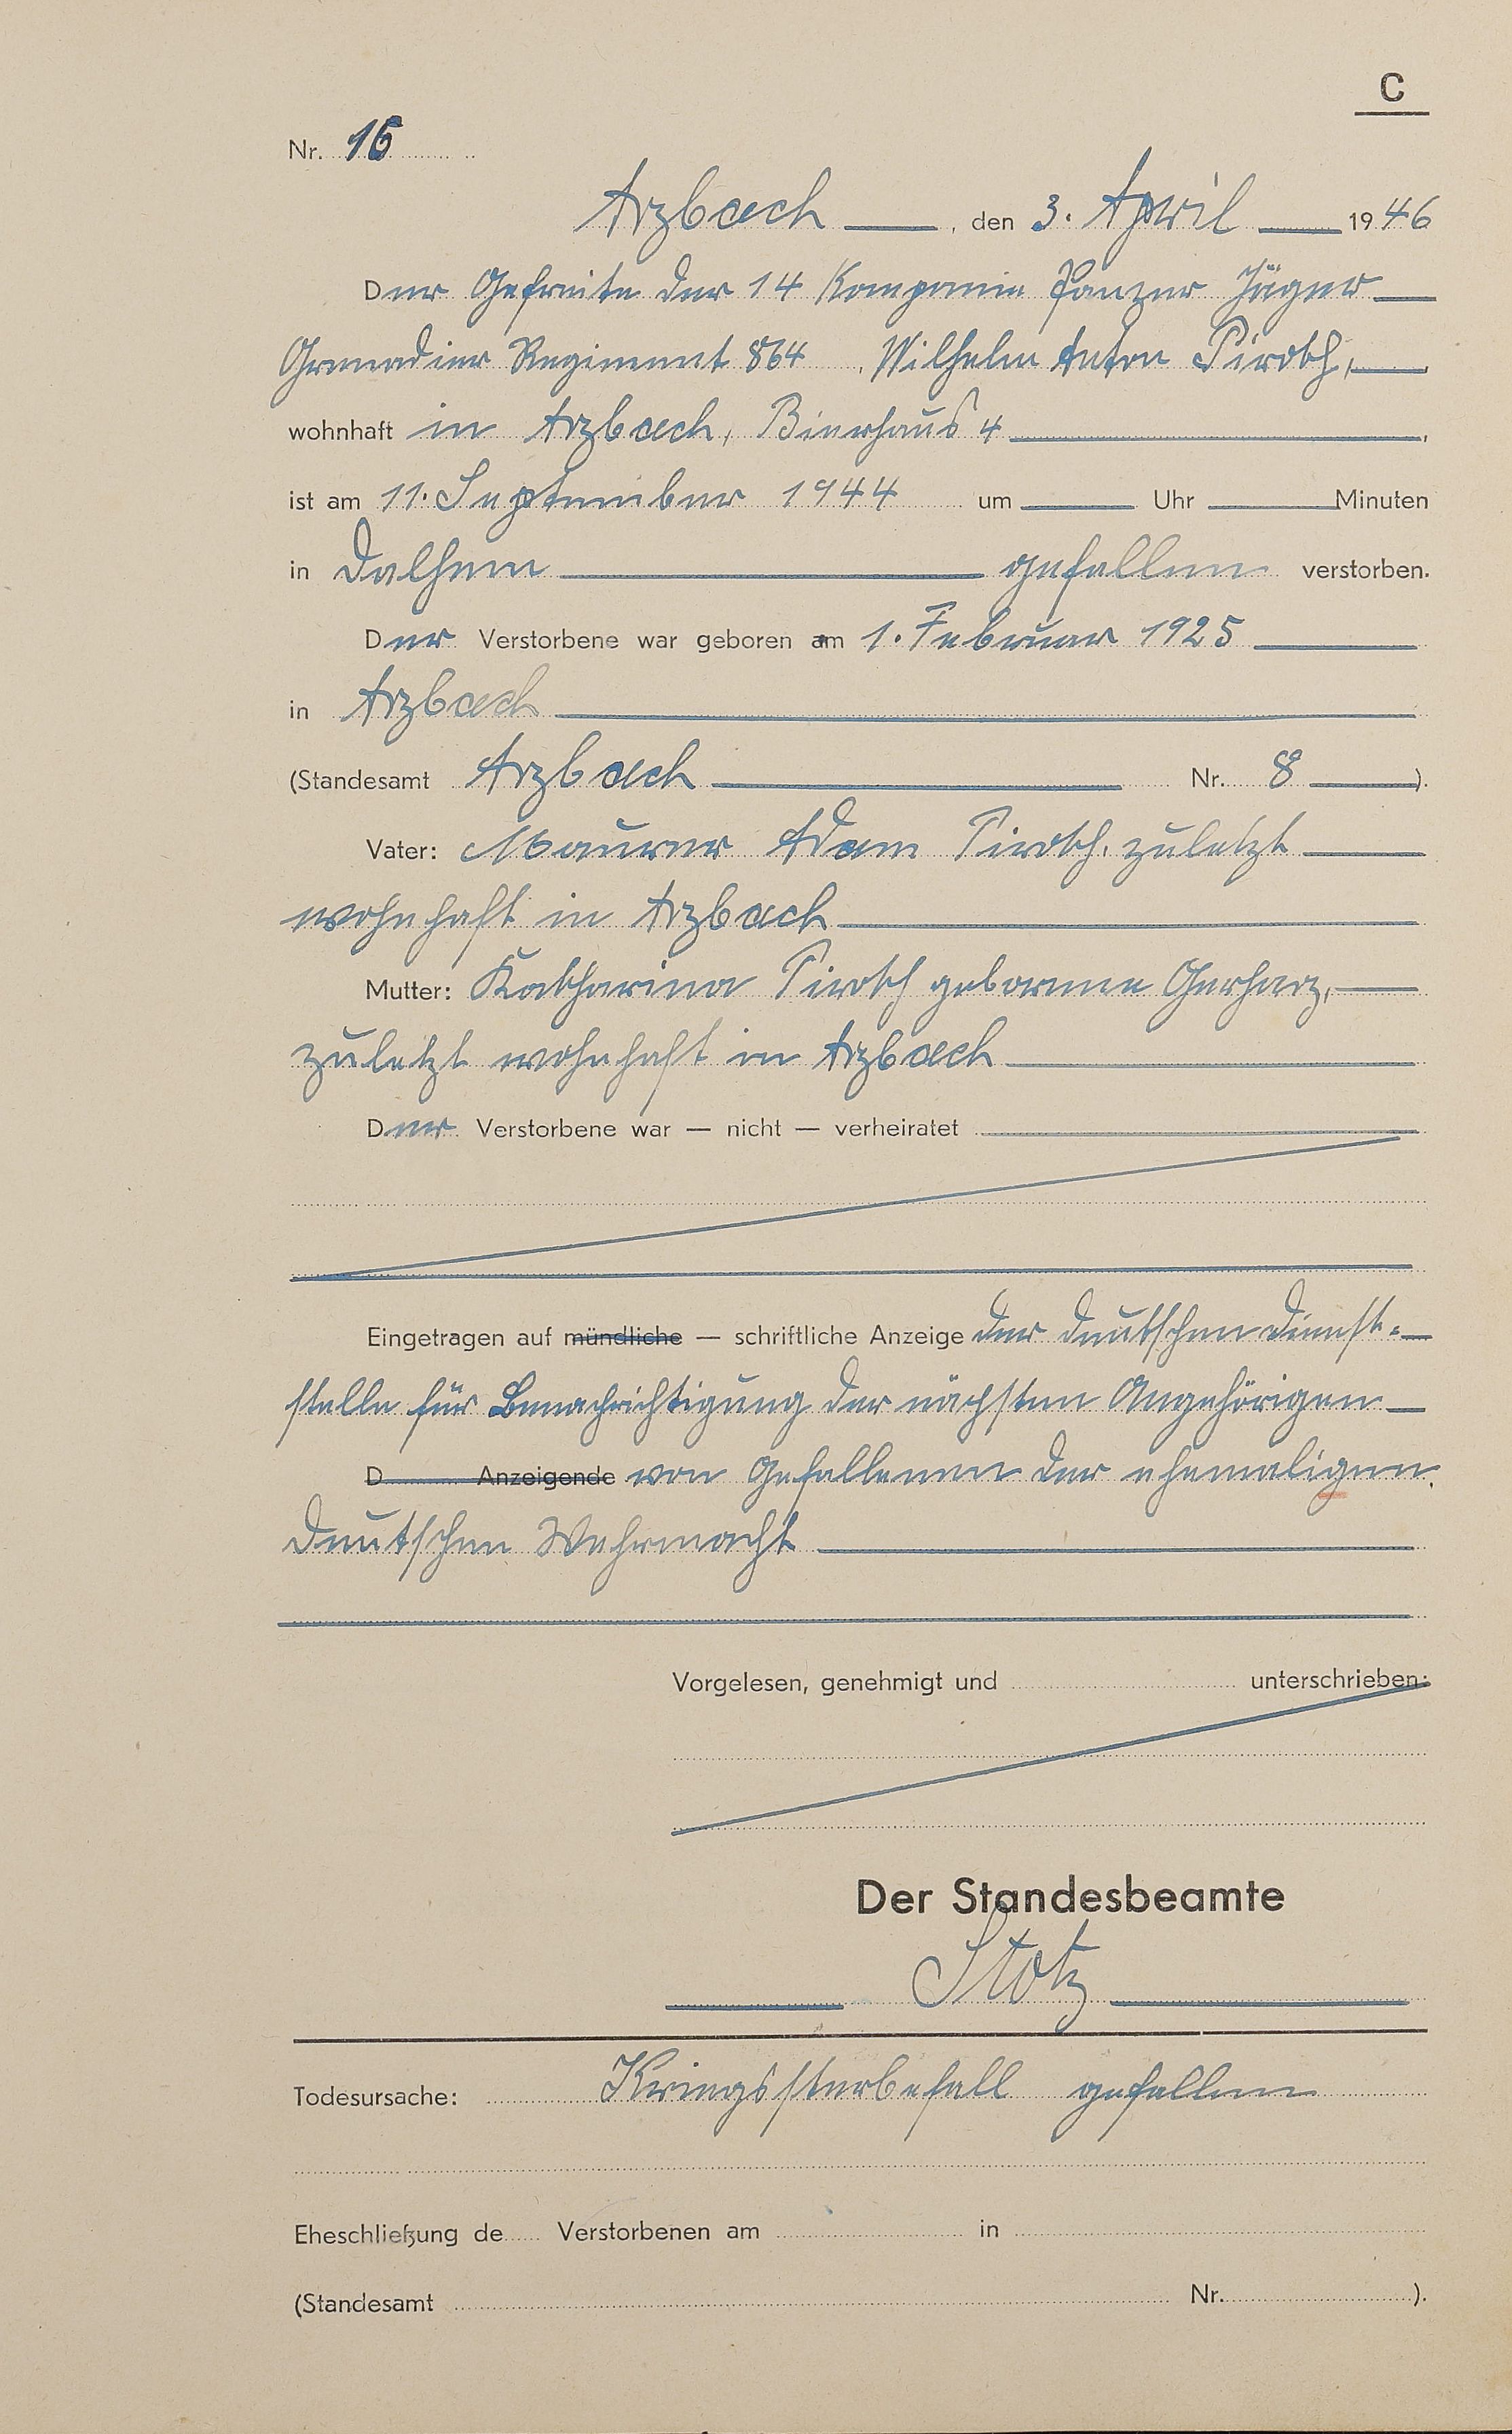 C
Nr. 16
Arzbach, den 3. April 1946
Der Gefreite der 14 Kompanie Panzer Jäger
Grenadier Regiment 864, Wilhelm Anton Piroth,
wohnhaft in Arzbach, Bierhaus 4,
ist am 11. September 1944 um Uhr Minuten
in Dalhem gefallen verstorben.
Der Verstorbene war geboren am 1. Februar 1925
in Arzbach
(Standesamt Arzbach Nr. 8).
Vater: Maurer Adam Piroth, zuletzt
wohnhaft in Arzbach
Mutter: Katharina Piroth geborene Gerharz,
zuletzt wohnhaft in Arzbach
Der Verstorbene war — nicht — verheiratet
Eingetragen auf mündliche — schriftliche Anzeige der deutschen Dienst-
stelle für Benachrichtigung der nächsten Angehörigen
D Anzeigende von Gefallenen der ehemaligen
deutschen Wehrmacht
Vorgelesen, genehmigt und unterschrieben:
Der Standesbeamte
Stotz
Todesursache: Kriegssterbefall gefallen
Eheschließung de Verstorbenen am in
(Standesamt Nr. ).